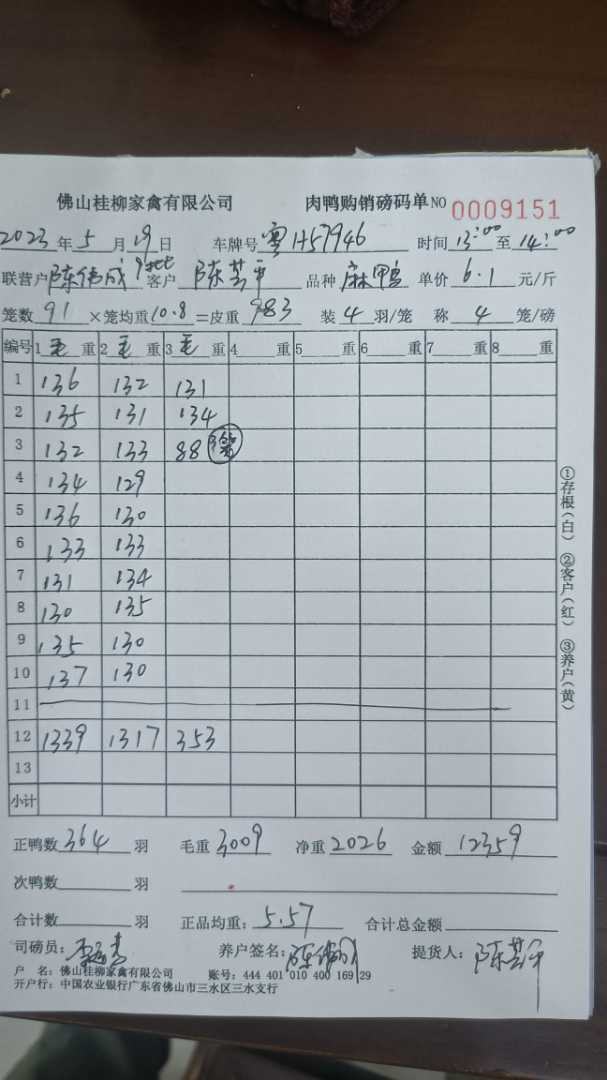 佛山桂柳家禽有限公司 肉鸭购销磅码单 NO 0009151
2023年5月19日 车牌号 粤H57946 时间 13:00 至 14:00
联营户 陈伟成 客户 陈芸平 品种 麻鸭 单价 6.1 元/斤
笼数 91 ×笼均重 10.8 =皮重 983 装 4 羽/笼 称 4 笼/磅
编号 1 毛 重 2 毛 重 3 毛 重 4 重 5 重 6 重 7 重 8 重
1 136 132 131
2 135 131 134
3 132 133 88
4 134 129
5 136 130
6 133 133
7 131 134
8 130 135
9 135 130
10 137 130
11
12 1339 1317 353
13
小计
正鸭数 364 羽 毛重 3009 净重 2026 金额 12359
次鸭数 羽
合计数 羽 正品均重: 5.57 合计总金额
司磅员: 养户签名: 提货人: 陈芸平
户 名: 佛山桂柳家禽有限公司 账号: 444 401 010 400 169 29
开户行: 中国农业银行广东省佛山市三水区三水支行
①存根(白) ②客户(红) ③养户(黄)